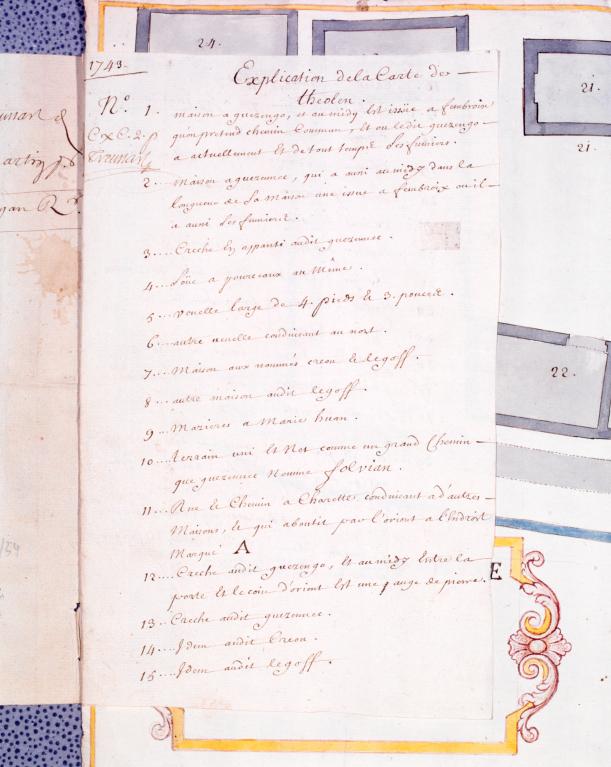 24.
21.
21.
22.
E
1743.
Explication de la Carte de
theolen.
N.º 1. maison a guezengo, et au midy Est issüe a fembroix
qu'on pretend chemin Commun, Et ou ledit guezengo
a actuellement Et de tout temps Ses fumiers.
C x C. 2. p
2. Maison a guezennec, qui a aussi au midy dans la
longueur de Sa Maison une issue a fembroix ou il
a aussi Ses fumiers.
3.... Creche En appanti audit guezennec.
4... Soüe a pourceaux au Même.
5... venelle large de 4. pieds & 3. pouces.
6... autre venelle conduisant au nort.
7... Maison aux nommés creon Et legoff.
8... autre maison audit legoff.
9... Mazieres a Marie huan.
10... terrain uni Et Net comme un grand Chemin
que guezennec Nomme folvian.
11... Rue Et Chemin a Charette conduisant a d'autres
Maisons, Et qui aboutit par l'orient a l'Endroit
Marqué A
12.... Creche audit guezengo, Et au midy Entre la
porte et le coin d'orient Est une auge de pierre.
13... Creche audit guezennec.
14.... Idem audit Creon.
15... Idem audit legoff.